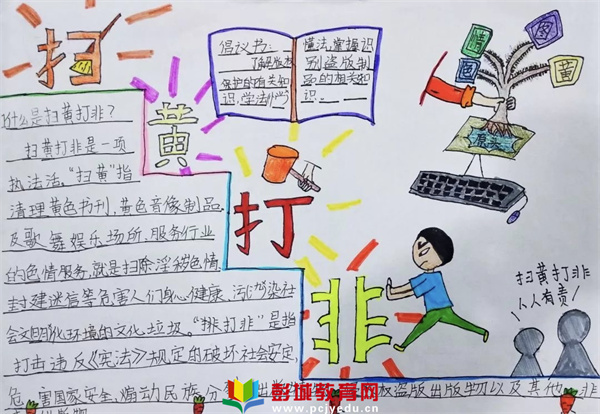 扫
黄
打
非
倡议书:
了解版权
保护的有关知
识,学法
懂法,掌握识
别盗版制
品的相关知
识
情
图
色
黄
源头
什么是扫黄打非?
扫黄打非是一项
执法活。“扫黄”指
清理黄色书刊,黄色音像制品,
及歌舞娱乐场所、服务行业
的色情服务,就是扫除淫秽色情、
封建迷信等危害人们身心健康、污染社
会文明化环境的文化垃圾。“排打非”是指
打击违反《宪法》规定的破坏社会安定,
危害国家安全、煽动民族分 权盗版出版物以及其他非
扫黄打非
人人有责!
彭城教育网
www.pcjyedu.cn